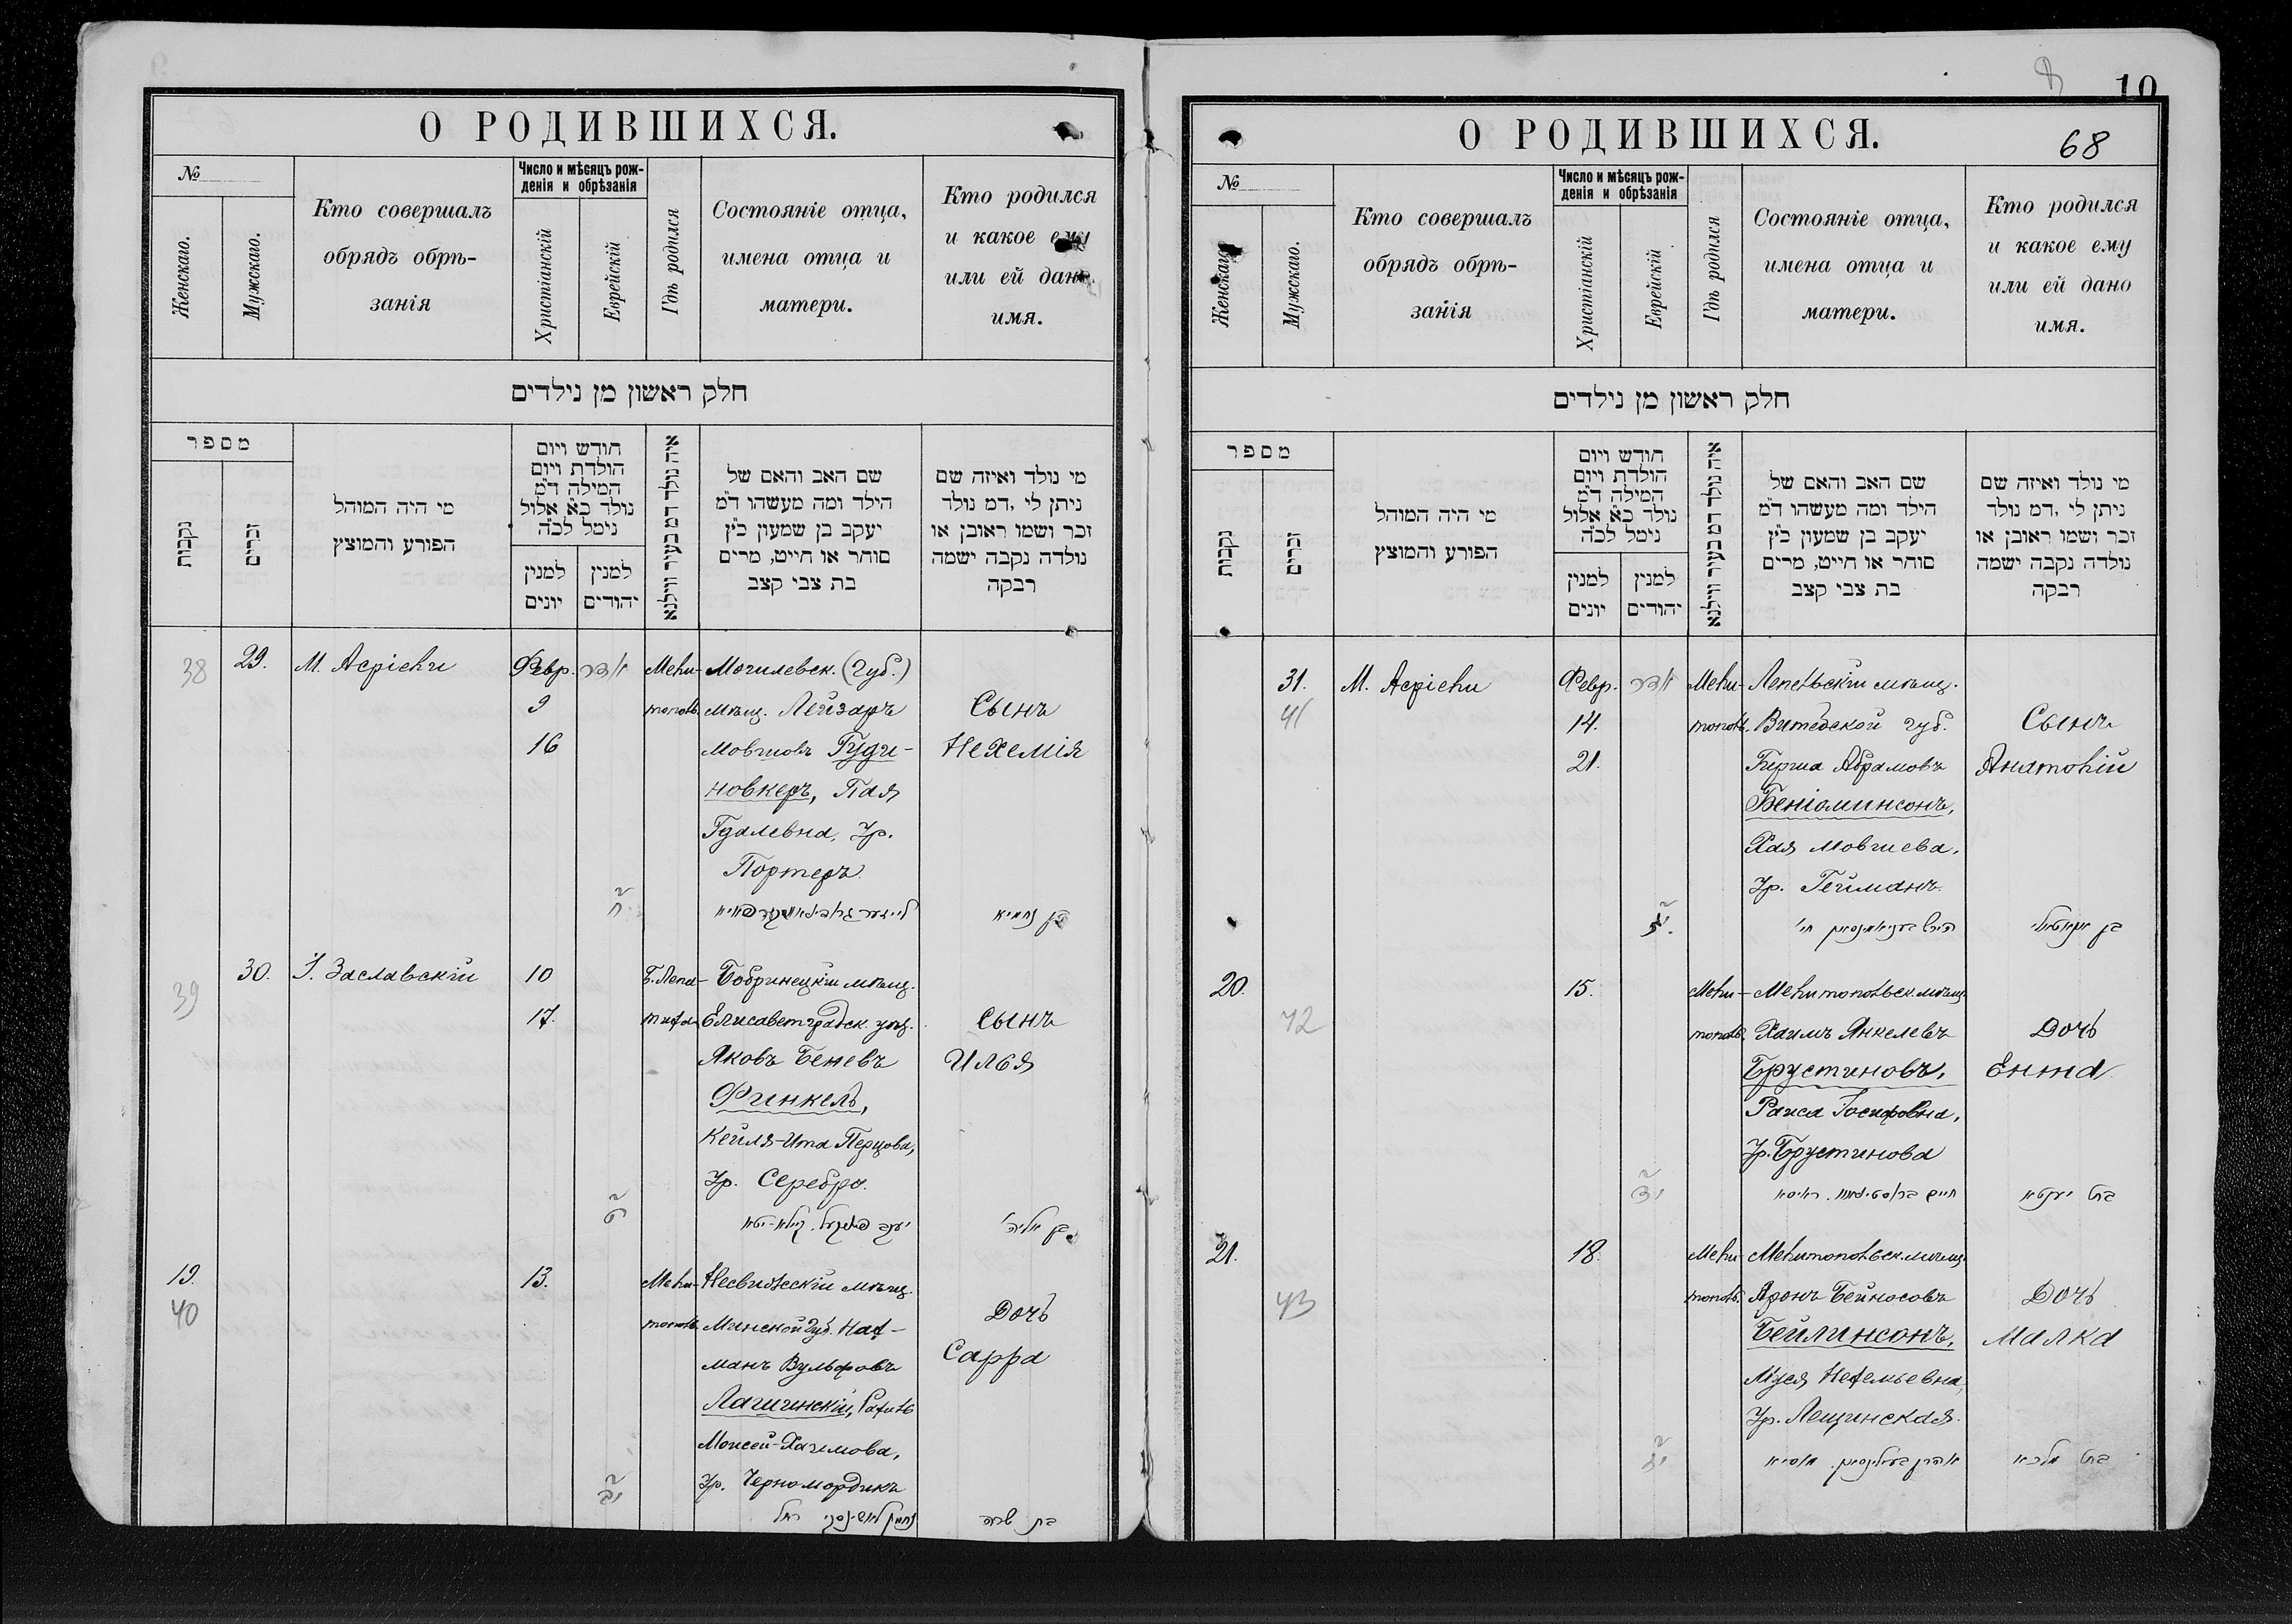 О РОДИВШИХСЯ.
№
Женскаго.
Мужскаго.
Кто совершалъ
обрядъ обрѣ-
занія
Число и мѣсяцъ рож-
денія и обрѣзанія
Христіанскій
Еврейскій
Гдѣ родился
Состояніе отца,
имена отца и
матери.
Кто родился
и какое ему
или ей дано
имя.
חלק ראשון מן נילדים
מספר
נקבות
זכרים
מי היה המוהל
הפורע והמוצץ
חודש ויום
הולדת ויום
המילה ד״מ
נולד כ״א אלול
נימל לכ״ה
למנין
יונים
למנין
יהודים
איה נולד דמ בעיר ווילנא
שם האב והאם של
הילד ומה מעשהו ד״מ
יעקב בן שמעון כ״ץ
סוחר או חייט, מרים
בת צבי קצב
מי נולד ואיזה שם
ניתן לי ,דמ נולד
זכר ושמו ראובן או
נולדה נקבה ישמה
רבקה
38
29.
М. Асріели
Февр.
9
16
אדר
ח
Мели-
тополь
Могилевск. (губ.)
мѣщ. Лейзаръ
Мовшовъ Гуди-
новкеръ, Пая
Гдалевна, Ур.
Портеръ
Сынъ
Нехемія
בן נחמיא
39
30.
І. Заславскій
10
17.
ט
Б. Лепа-
тиха
Бобринецкій мѣщ.
Елисаветградск. уѣз.
Яковъ Беневъ
Финкель,
Кейля-Ита Перцова,
Ур. Серебро.
יעקב פינקעל. קיילא-יטא
Сынъ
Илья
בן אליהו
19.
40
13.
יב
Мели-
тополь
Несвижескій мѣщ.
Минской губ. Нах-
манъ Вульфовъ
Лагишнскій, Рахиль
Моисей-Хаимова,
Ур. Черномордикъ
Дочь
Сарра
בת שרה
10
68
О РОДИВШИХСЯ.
№
Женскаго
Мужскаго.
Кто совершалъ
обрядъ обрѣ-
занія
Число и мѣсяцъ рож-
денія и обрѣзанія
Христіанскій
Еврейскій
Гдѣ родился
Состояніе отца,
имена отца и
матери.
Кто родился
и какое ему
или ей дано
имя.
חלק ראשון מן נילדים
מספר
נקבות
זכרים
מי היה המוהל
הפורע והמוצץ
חודש ויום
הולדת ויום
המילה ד״מ
נולד כ״א אלול
נימל לכ״ה
למנין
יונים
למנין
יהודים
איה נולד דמ בעיר ווילנא
שם האב והאם של
הילד ומה מעשהו ד״מ
יעקב בן שמעון כ״ץ
סוחר או חייט, מרים
בת צבי קצב
מי נולד ואיזה שם
ניתן לי ,דמ נולד
זכר ושמו ראובן או
נולדה נקבה ישמה
רבקה
31.
41
М. Асріели
Февр.
14.
21.
אדר
Мели-
тополь.
Лепельскій мѣщ.
Витебской губ.
Гирша Абрамовъ
Беніаминсонъ,
Хая Мовшева,
Ур. Гейманъ
הירש בעניאמינסאן חי׳
Сынъ
Анатолій
בן אנאטאלי
20.
42
15.
Мели-
тополь,
Мелитопольск. мѣщ.
Хаимъ Янкелевъ
Брустиновъ,
Раиса Іосифовна,
Ур. Брустинова
חיים ברוסטינאוו. ראיסא
Дочь
Ента
בת יענטא
21.
43
18.
Мели-
тополь.
Мелитопольск. мѣщ.
Аронъ Бейносовъ
Бейлинсонъ,
Муся Нехемьевна,
Ур. Лещинская.
אהרן בעילינסאן. מוסיא
Дочь
Малка
בת מלכא